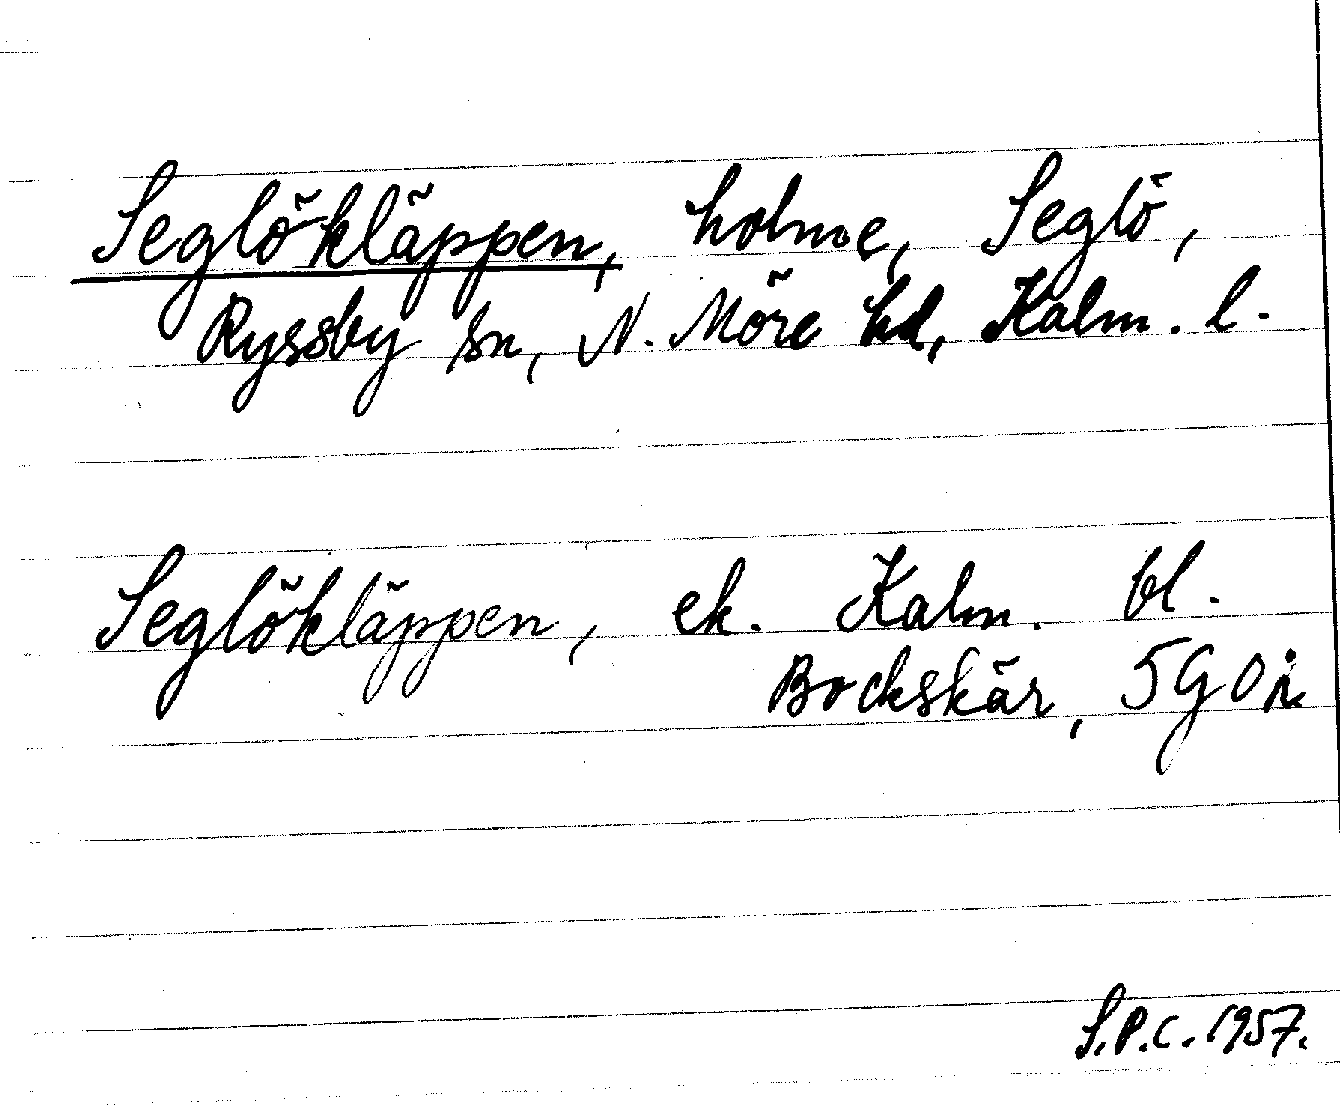 Seglökläppen, holme, Seglö,
Ryssby sn, N. Möre hd, Kalm. l.
Seglökläppen, ek. Kalm. bl.
Bockskär, 5G0i
S.P.C. 1957.